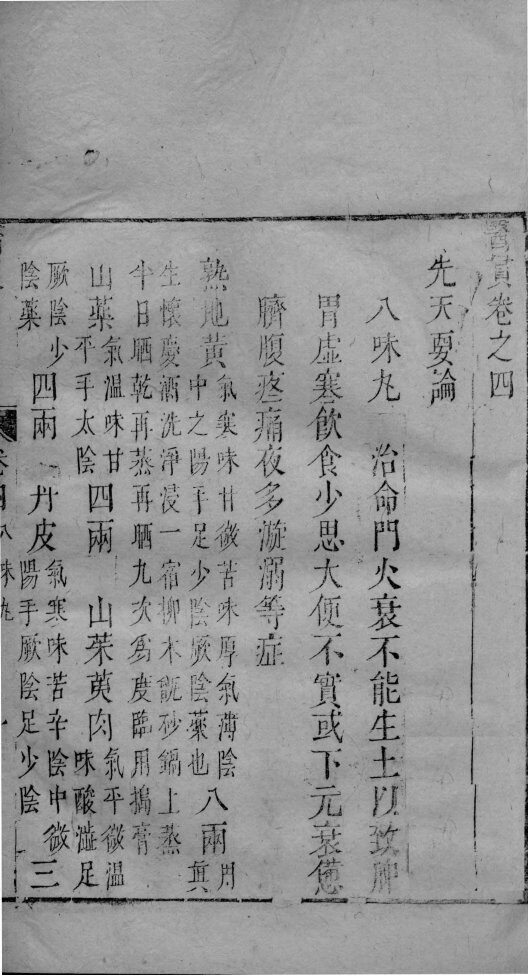 醫貫卷之四
先天要論
八味丸 治命門火衰不能生土以致脾
胃虛寒飲食少思大便不實或下元衰憊
臍腹疼痛夜多漩溺等症
熟地黄 氣寒味甘微苦味厚氣薄陰
中之陽手足少陰厥陰藥也 八兩 用
真
生懷慶酒洗淨浸一宿柳木甑砂鍋上蒸
半日晒乾再蒸再晒九次為度臨用搗膏
山藥 氣溫味甘
平手太陰 四兩 山茱萸肉 氣平微溫
味酸澁足
厥陰少
陰藥 四兩 丹皮 氣寒味苦辛陰中微
陽手厥陰足少陰 三
卷四 八味丸 一